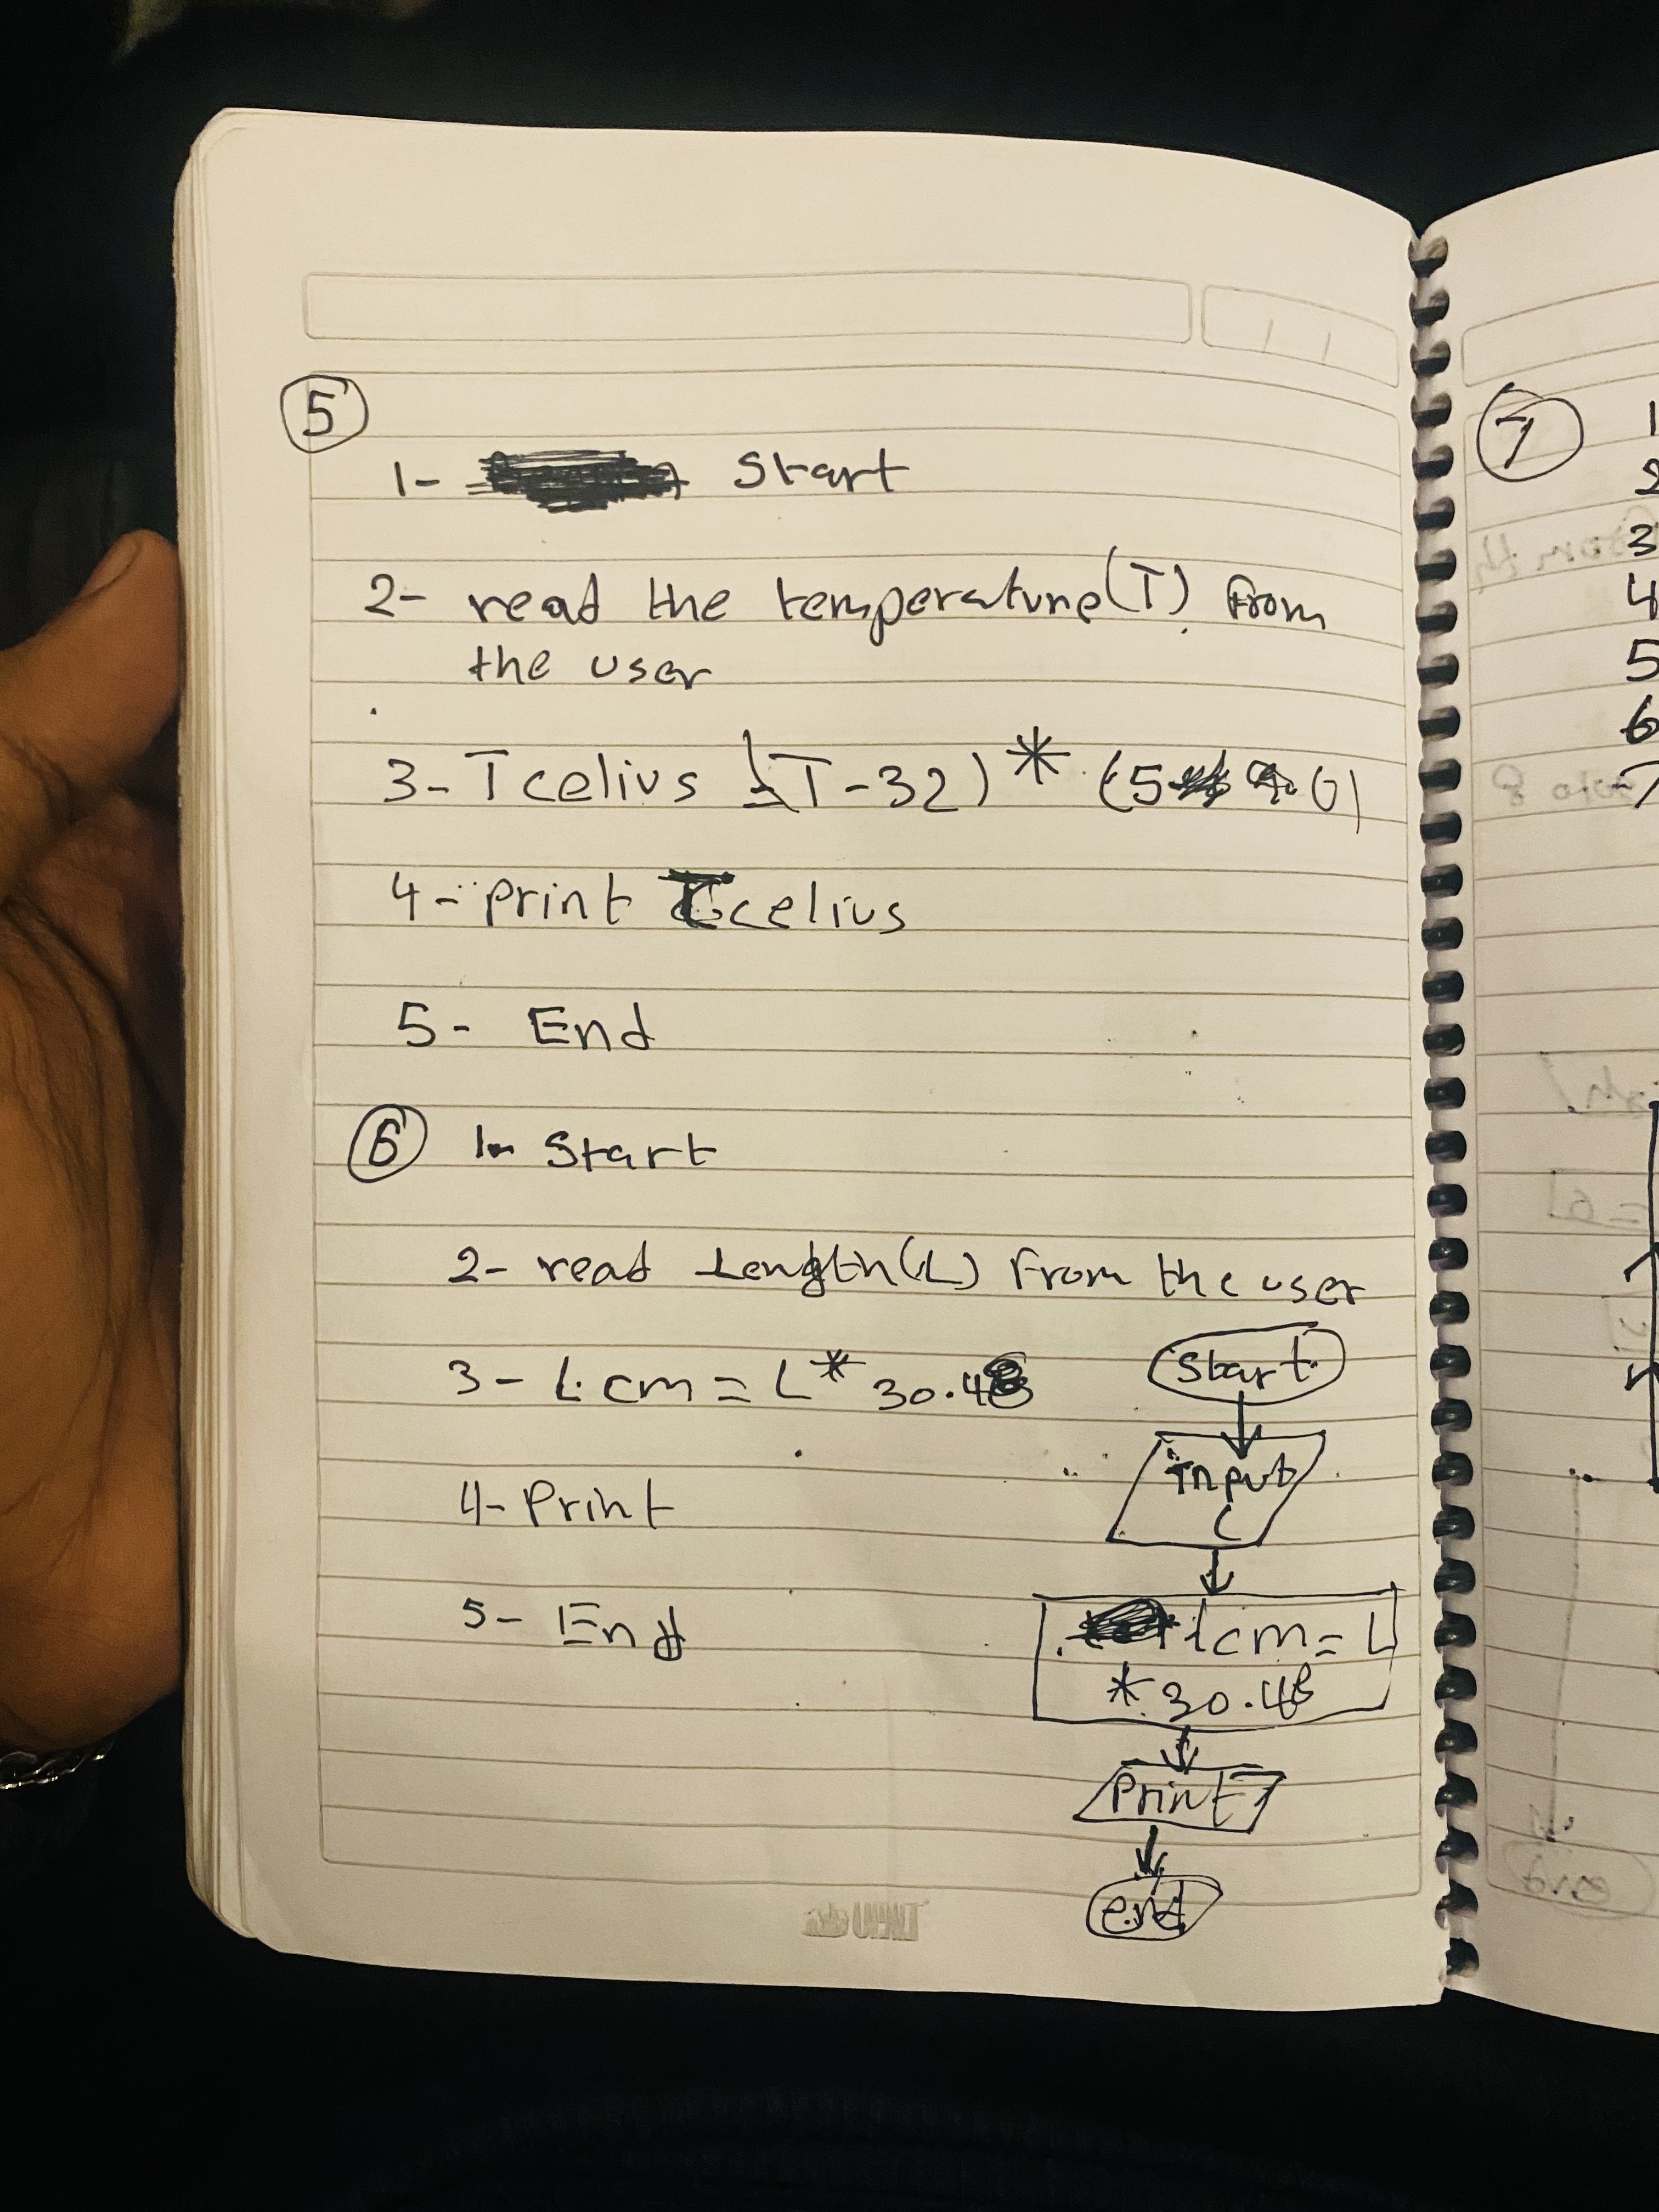 5
1- Start
2- read the temperature(T) from
the user
3- Tcelius = (T-32) * (5
4- print Tcelius
5- End
6 1- Start
2- read Length(L) From the user
3- Lcm = L * 30.48
4- Print
5- End
Start
Input
L
Lcm = L
* 30.48
Print
end
7
1
2
3
4
5
6
7